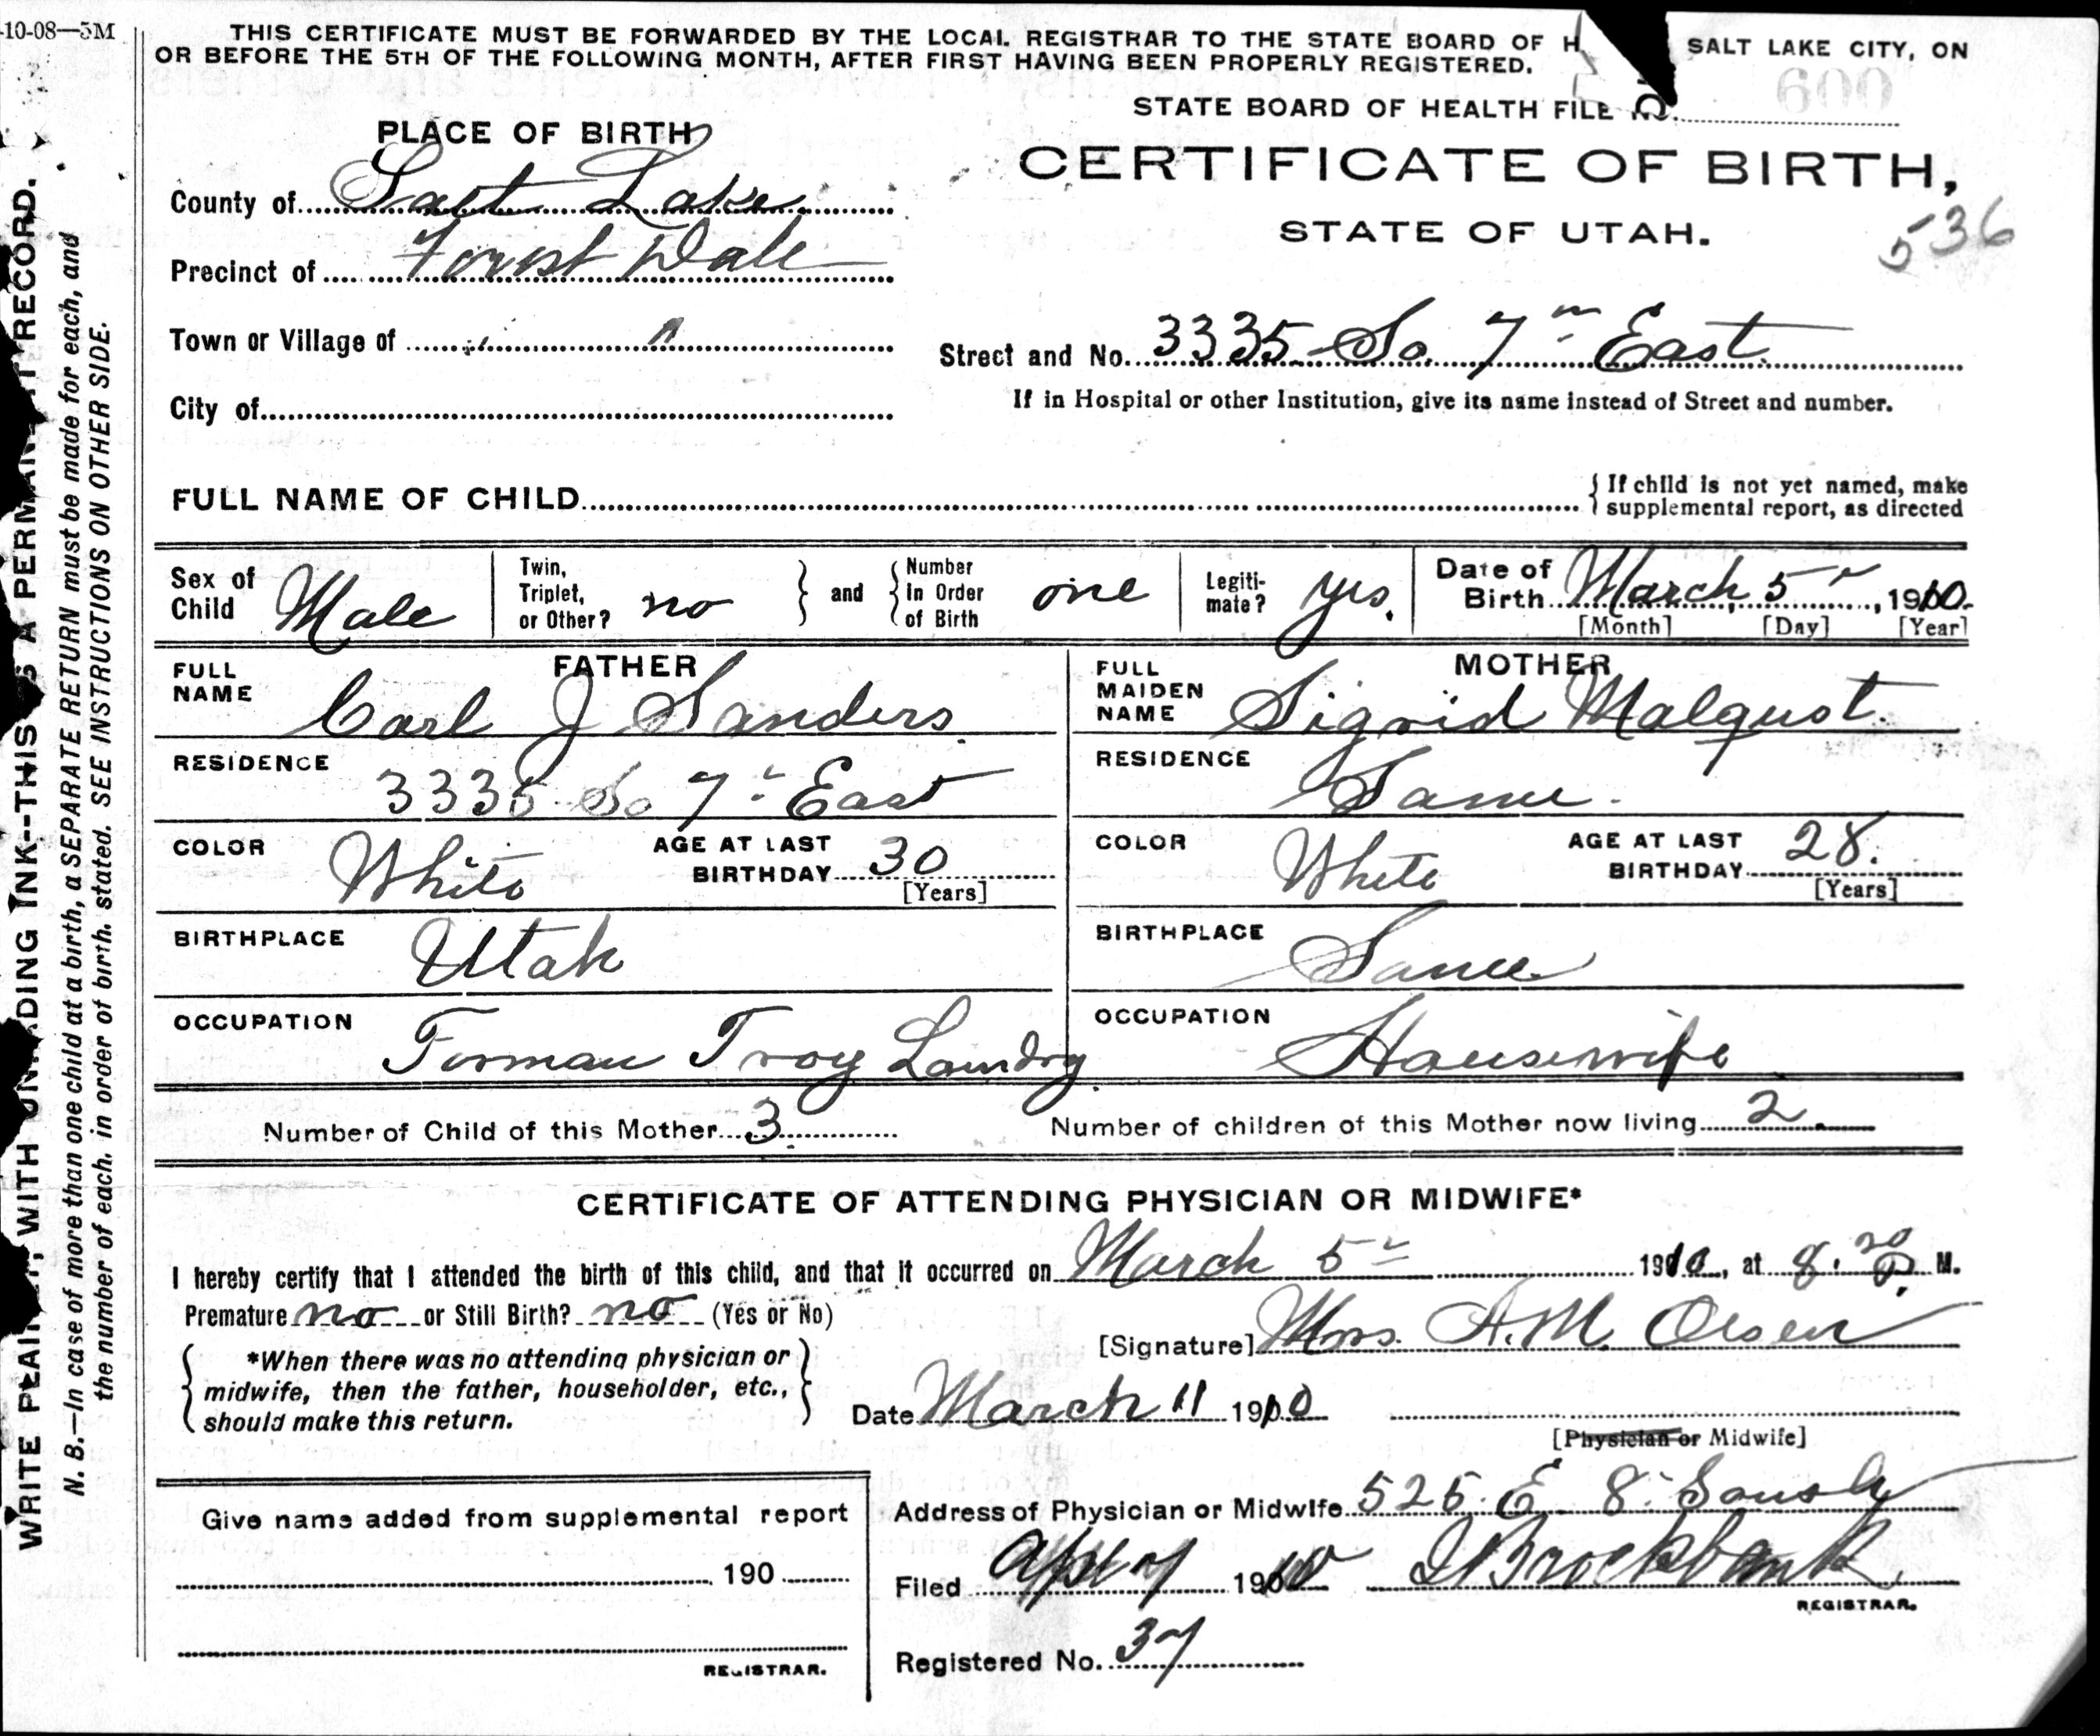 10-08—5M
THIS CERTIFICATE MUST BE FORWARDED BY THE LOCAL REGISTRAR TO THE STATE BOARD OF H SALT LAKE CITY, ON
OR BEFORE THE 5TH OF THE FOLLOWING MONTH, AFTER FIRST HAVING BEEN PROPERLY REGISTERED.
STATE BOARD OF HEALTH FILE NO. 600
PLACE OF BIRTH
CERTIFICATE OF BIRTH,
STATE OF UTAH.
536
County of Salt Lake
Precinct of Forest Dale
Town or Village of " "
Street and No. 3335 So 7th East
City of
If in Hospital or other Institution, give its name instead of Street and number.
FULL NAME OF CHILD
If child is not yet named, make
supplemental report, as directed
Sex of Child Male
Twin, Triplet, or Other? no and Number In Order of Birth one
Legitimate? yes.
Date of Birth March 5 1910
[Month] [Day] [Year]
FATHER
FULL NAME Carl J Sanders
RESIDENCE 3335 So 7 East
COLOR White AGE AT LAST BIRTHDAY 30
[Years]
BIRTHPLACE Utah
OCCUPATION Forman Troy Laundry
MOTHER
FULL MAIDEN NAME Sigrid Malqust.
RESIDENCE Same.
COLOR White AGE AT LAST BIRTHDAY 28.
[Years]
BIRTHPLACE Same
OCCUPATION Housewife
Number of Child of this Mother 3
Number of children of this Mother now living 2
CERTIFICATE OF ATTENDING PHYSICIAN OR MIDWIFE*
I hereby certify that I attended the birth of this child, and that it occurred on March 5 1910, at 8.30 P. M.
Premature no or Still Birth? no (Yes or No)
[Signature] Mrs. A.M. Olsen
*When there was no attending physician or
midwife, then the father, householder, etc.,
should make this return.
Date March 11 1910
[Physician or Midwife]
Address of Physician or Midwife 525 E 8 South
Give name added from supplemental report
190
REGISTRAR.
Filed Apl 7 1910 Brockbank
REGISTRAR.
Registered No. 37
WRITE PLAINLY, WITH UNFADING INK--THIS IS A PERMANENT RECORD.
N. B.—In case of more than one child at a birth, a SEPARATE RETURN must be made for each, and
the number of each, in order of birth, stated. SEE INSTRUCTIONS ON OTHER SIDE.